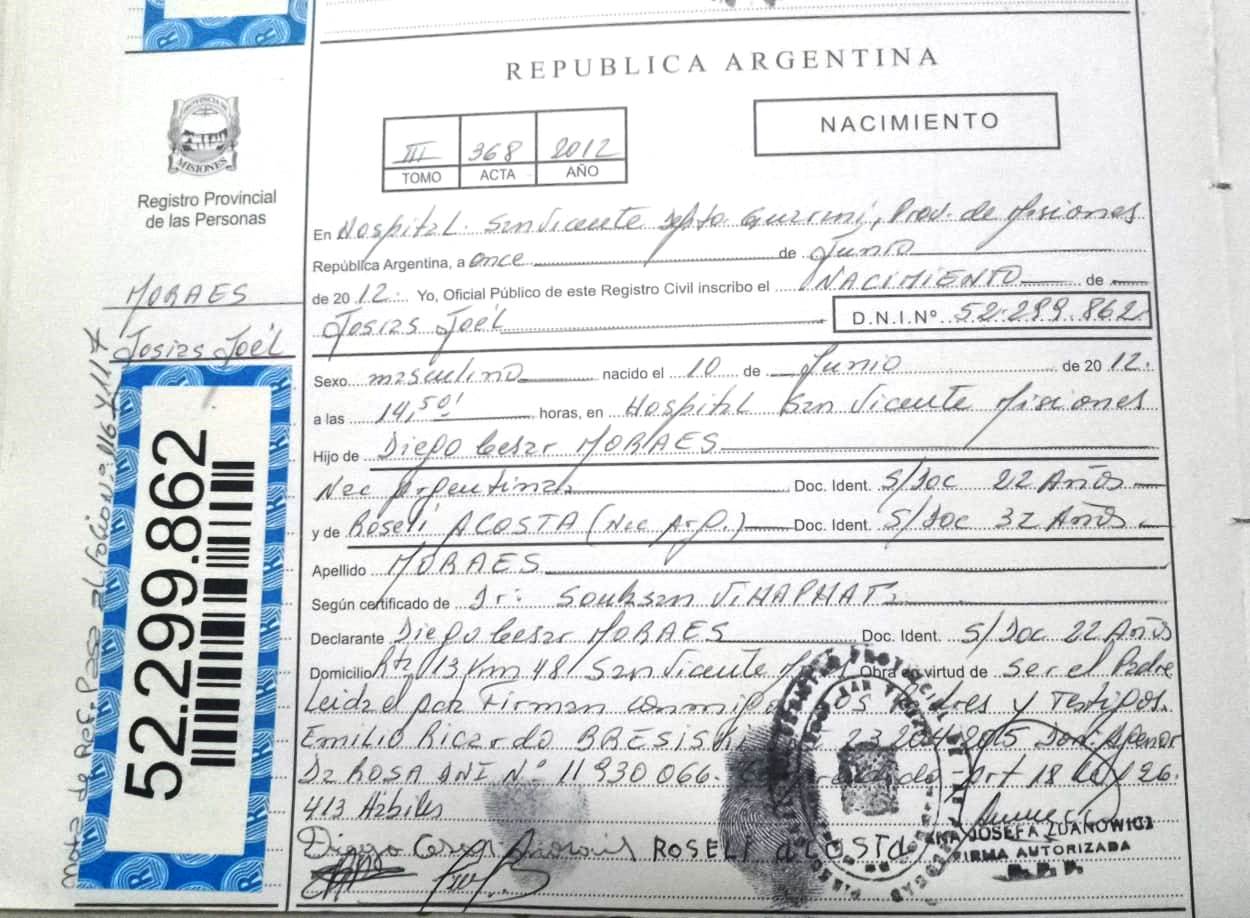 REPUBLICA ARGENTINA
NACIMIENTO
III 368 2012
TOMO ACTA AÑO
PROVINCIA DE
MISIONES
Registro Provincial
de las Personas
MORAES
Josias Joél
52.299.862
nota de Ref. Pasa al folio nº
En Hospital San Vicente Depto Guarani, Prov. de Misiones
República Argentina, a once de Junio
de 2012. Yo, Oficial Público de este Registro Civil inscribo el NACIMIENTO de
Josias Joél D.N.I.Nº 52.299.862
Sexo masculino nacido el 10 de Junio de 2012.
a las 14,50' horas, en Hospital San Vicente Misiones
Hijo de Diego Cesar MORAES
Nac Argentina Doc. Ident. S/Doc 22 Años
y de Roseli ACOSTA (Nac Arg.) Doc. Ident. S/Doc 32 Años
Apellido MORAES
Según certificado de Dr:
Declarante Diego Cesar MORAES Doc. Ident. S/Doc 22 Años
Domicilio Rta 13 Km 48 San Vicente Obra en virtud de Ser el Padre
Leida el acta Firman conmigo os Padres y Testigos.
Emilio Ricardo
Da ROSA DNI Nº 11930066. Art 18 26.
413
Diego ROSELI ACOSTA
JOSEFA ZUANOWICZ
FIRMA AUTORIZADA
R.P.P.